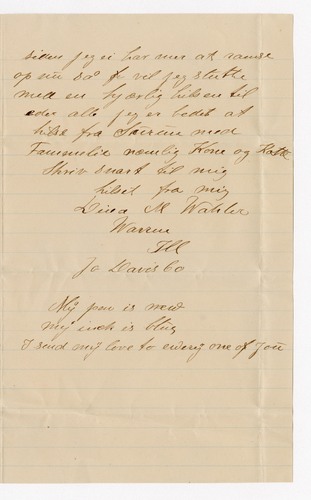 siden jeg ei har mer at ramse
op nu så jeg vil jeg slutte
med en kjærlig hilsen til
eder alle jeg er bedet at
hilse fra med
Fammelie nemlig Kone og Katte
Skriv snart til mig
hilset fra mig
Dina M Wahler
Warren
Ill
Jo Davis Co
My pen is
my inck is
I send my love to every one of you